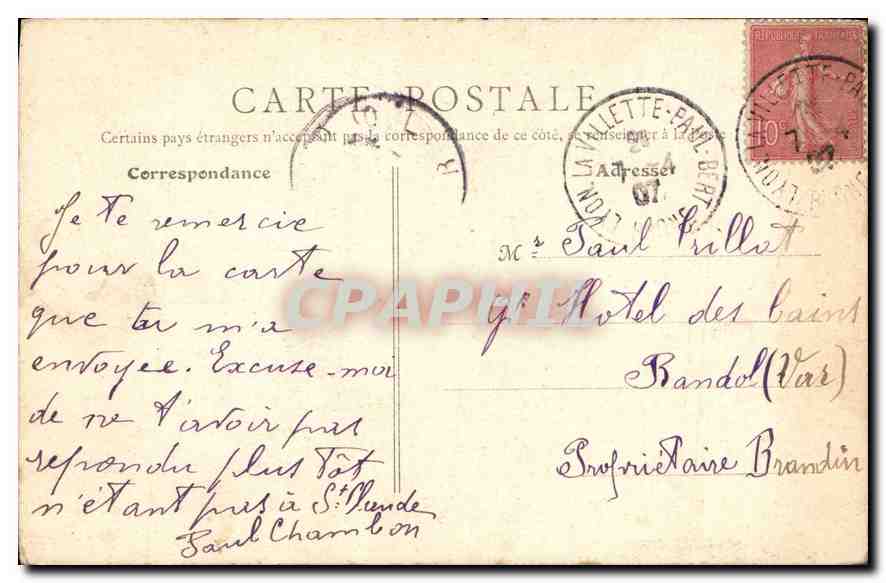 RÉPUBLIQUE FRANÇAISE
10c
CARTE POSTALE
Certains pays étrangers n'acceptant pas la correspondance de ce côté, se renseigner à la Poste
LYON. LA VILLETTE-PAUL-BERT
RHONE
7 -4
07
LYON. LA VILLETTE-PAUL
7 -4
07
Correspondance
Adresse
Je te remercie
pour la carte
que tu m'a
envoyée. Excuse-moi
de ne t'avoir pas
repondu plus tôt
n'étant pas à St
Paul Chambon
Mr Paul Trillat
Gd Hotel des bains
Bandol (Var)
Proprietaire Brandin
CPAPHIL